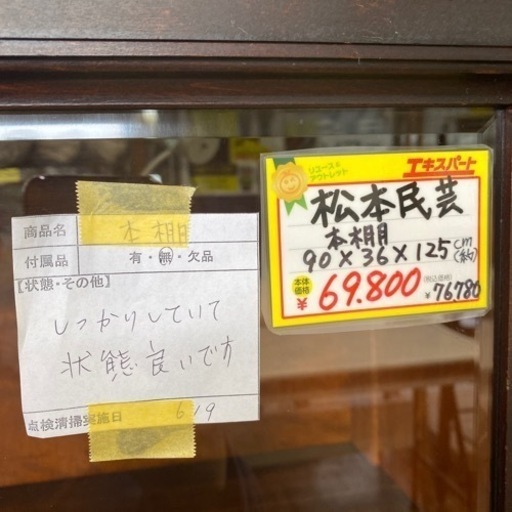 商品名 本棚
付属品 有・無・欠品
【状態・その他】
しっかりしていて
状態良いです
点検清掃実施日 6/9
リユース&
アウトレット
エキスパート
松本民芸
本棚
90×36×125cm(約)
本体価格 ¥69.800 (税込価格) ¥76.780